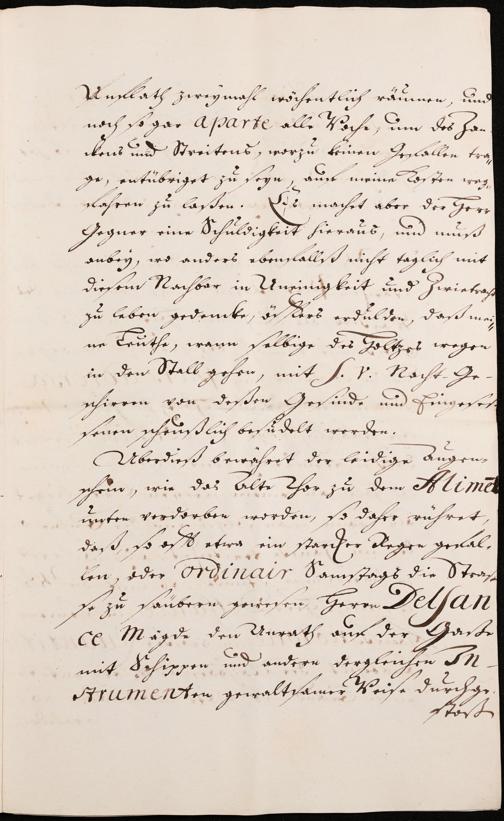 Unflath zweymahl wöchentlich räumen, und
noch sogar aparte alle Woche, um des Zan-
ckens und Streitens, worzu keinen Gefallen tra-
ge, entübriget zu seyn, auf meine Kosten weg-
fahren zu laßen. Es machet aber der Herr
Gegner eine Schuldigkeit hieraus, und muß
anbey, wo anders ebenfallß nicht täglich mit
diesem Nachbar in Uneinigkeit und Zwietracht
zu leben gedencke, öffters erdulden, daß mei-
ne Leuthe, wann selbige des Holtzes wegen
in den Stall gehen, mit S. V. Nacht-Ge-
schirren von deßen Gesinde und Eingeses-
senen scheußlich besudelt werden.
Uberdieß bewähret der leidige Augen-
schein, wie das alte Thor zu dem
unten verdorben worden, so daher rühret,
daß, so offt etwa ein starcker Regen gefal-
len, oder ordinair Samstags die Stras-
se zu säubern gewesen Herrn Delsan
ce Mägde den Unrath auf der Gaße
mit Schippen und andern dergleichen In-
strumenten gewaltsamer Weise durchge-
stoß